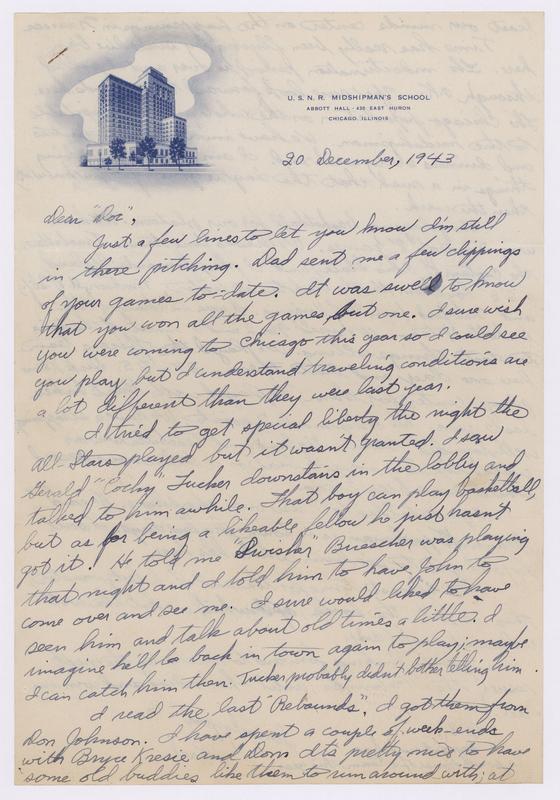 U.S.N.R. MIDSHIPMAN'S SCHOOL
ABBOTT HALL - 430 EAST HURON
CHICAGO, ILLINOIS
20 December, 1943
Dear "Doc",
Just a few lines to let you know I'm still
in there pitching. Dad sent me a few clippings
of your games to-date. It was swell to know
that you won all the games but one. I sure wish
you were coming to Chicago this year so I could see
you play but I understand traveling conditions are
a lot different than they were last year.
I tried to get special liberty the night the
All-Stars played but it wasn't granted. I saw
Gerald "Cochy" Tucker downstairs in the lobby and
talked to him awhile. That boy can play basketball,
but as for being a likeable fellow he just hasn't
got it. He told me "Swisher" Buescher was playing
that night and I told him to have John to
come over and see me. I sure would liked to have
seen him and talk about old times a little. I
imagine he'll be back in town again to play; maybe
I can catch him then. Tucker probably didn't bother telling him.
I read the last "Rebounds". I got them from
Don Johnson. I have spent a couple of week-ends
with Bryce Kresie and Don. It's pretty nice to have
some old buddies like them to run around with; at